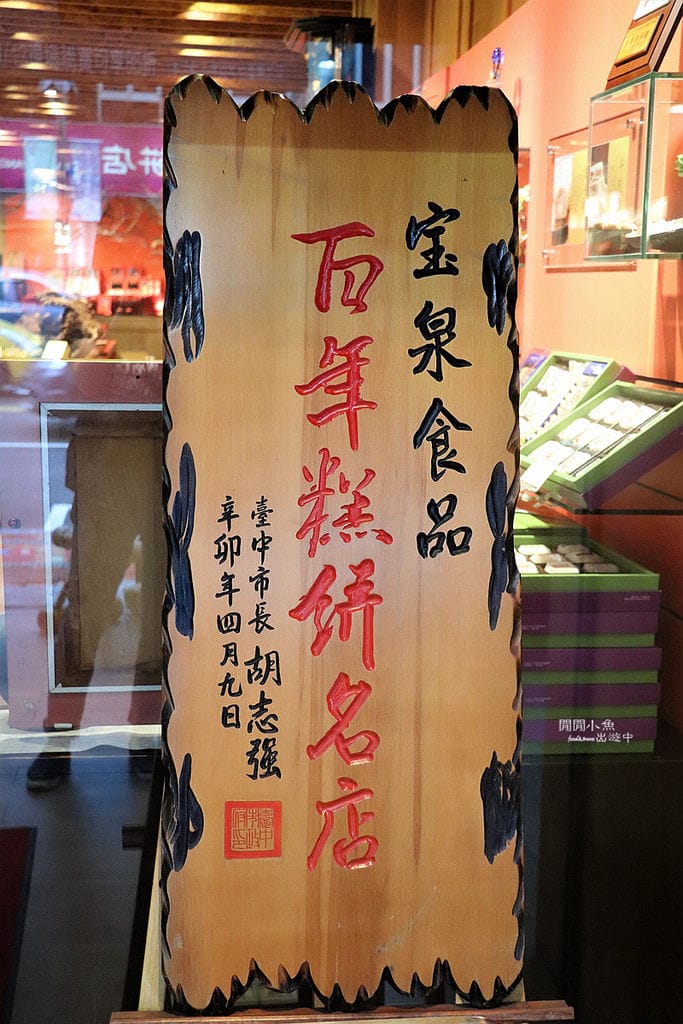 宝泉食品
百年糕餅名店
臺中市長 胡志強
辛卯年四月九日
閒閒小魚
出遊中
餅店